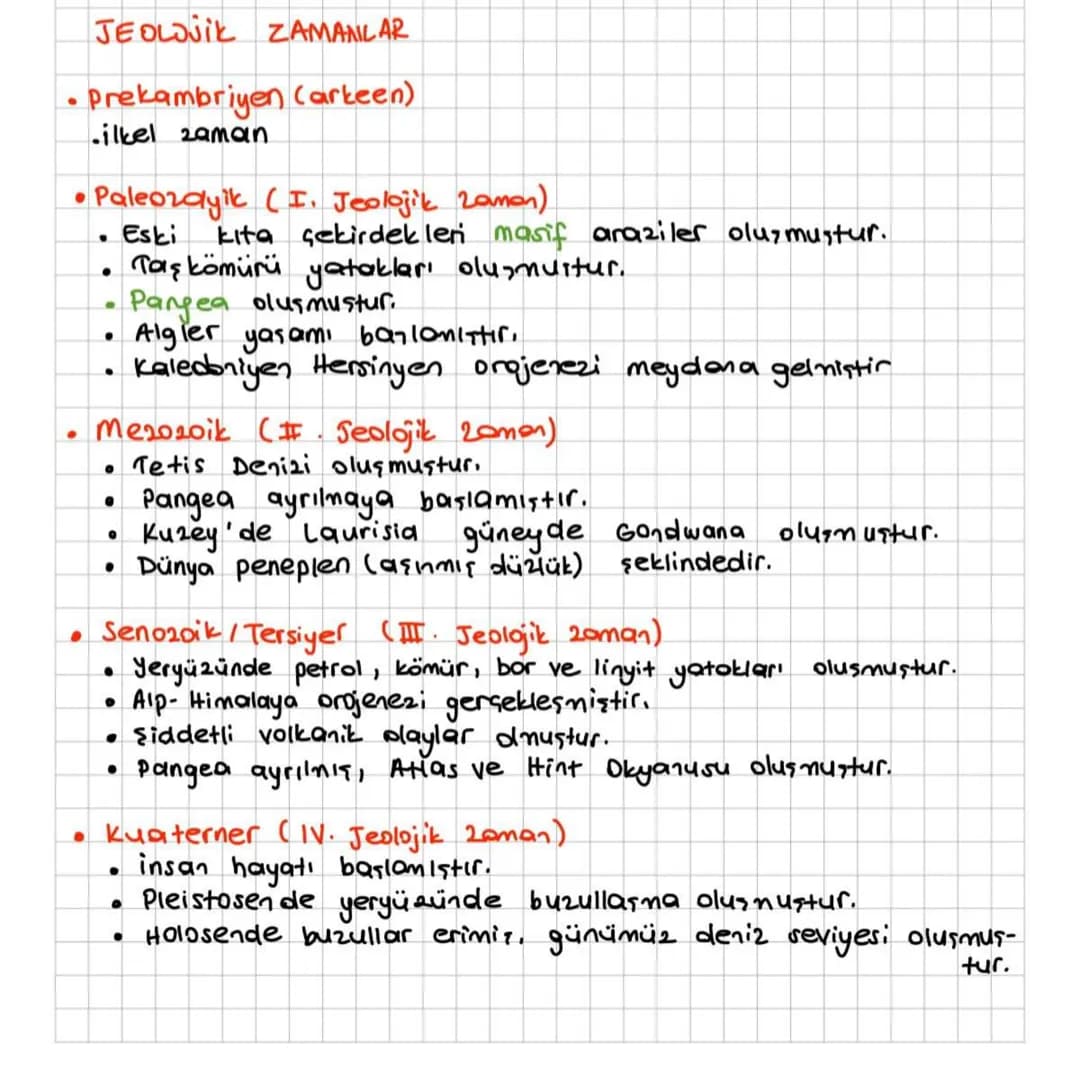 JEOLOJİK ZAMANLAR
• Prekambriyen (arkeen)
.ilkel zaman
• Paleozoyik (I. Jeolojik zaman)
• Eski kıta çekirdekleri masif araziler oluşmuştur.
• Taşkömürü yatakları oluşmuştur.
• Pangea oluşmuştur.
• Algler yaşamı başlamıştır.
• Kaledoniyen Hersinyen orojenezi meydana gelmiştir
• Mezozoik (II. Jeolojik zaman)
• Tetis Denizi oluşmuştur.
• Pangea ayrılmaya başlamıştır.
• Kuzey'de Laurisia güneyde Gondwana oluşmuştur.
• Dünya peneplen (aşınmış düzlük) şeklindedir.
• Senozoik / Tersiyer (III. Jeolojik zaman)
• Yeryüzünde petrol, kömür, bor ve linyit yatakları oluşmuştur.
• Alp-Himalaya orojenezi gerçekleşmiştir.
• Şiddetli volkanik olaylar olmuştur.
• Pangea ayrılmış, Atlas ve Hint Okyanusu oluşmuştur.
• Kuaterner (IV. Jeolojik zaman)
• insan hayatı başlamıştır.
• Pleistosende yeryüzünde buzullaşma oluşmuştur.
• Holosende buzullar erimiş, günümüz deniz seviyesi oluşmuş-
tur.